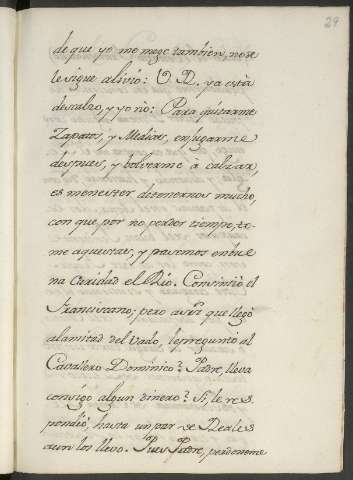 29
de que yo me moge tambien, no se
le sigue alivio: V. R. ya està
descalzo, y yo nò: Para quitarme
Zapatos, y Medias, enjugarme
despues, y bolverme à calzar,
es menester detenernos mucho,
con que por no perder tiempo, to-
me aquestas, y pasemos en bue
na Caridad el Rio. Convinoò el
Franciscano; pero asì que llegò
a la mitad del Vado, le preguntò al
Cavallero Dominico: Padre, lleva
consigo algun dinero? Si, le res
pondiò, hasta un par de Reales
aun los llevo. Pues Padre, perdoneme